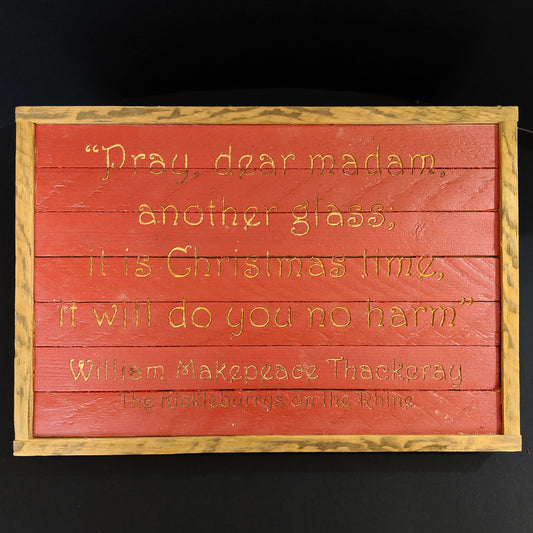 “Pray, dear madam,
another glass;
it is Christmas time,
it will do you no harm”
William Makepeace Thackeray
The Kickleburrys on the Rhine